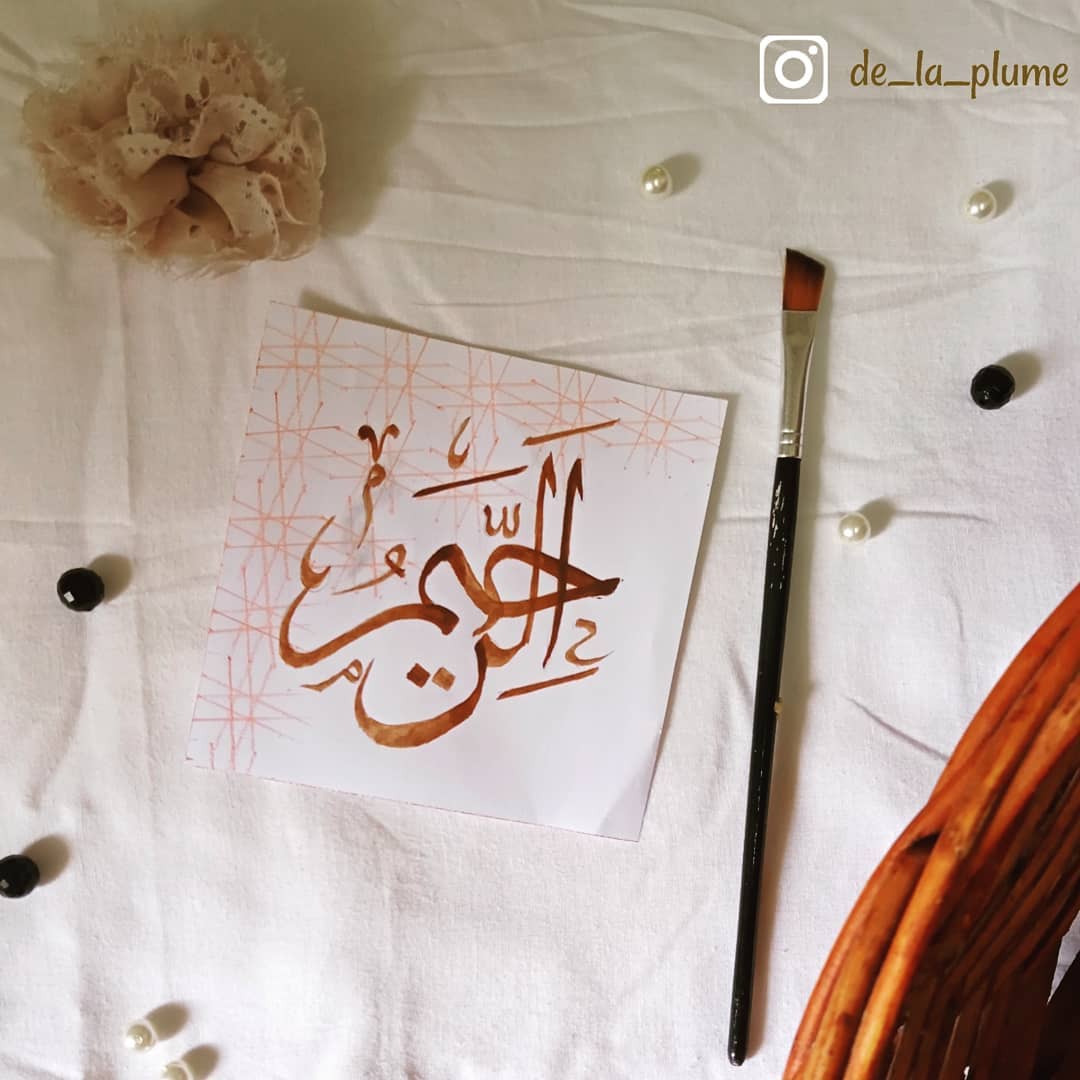 de_la_plume
الرَّحِيمُ